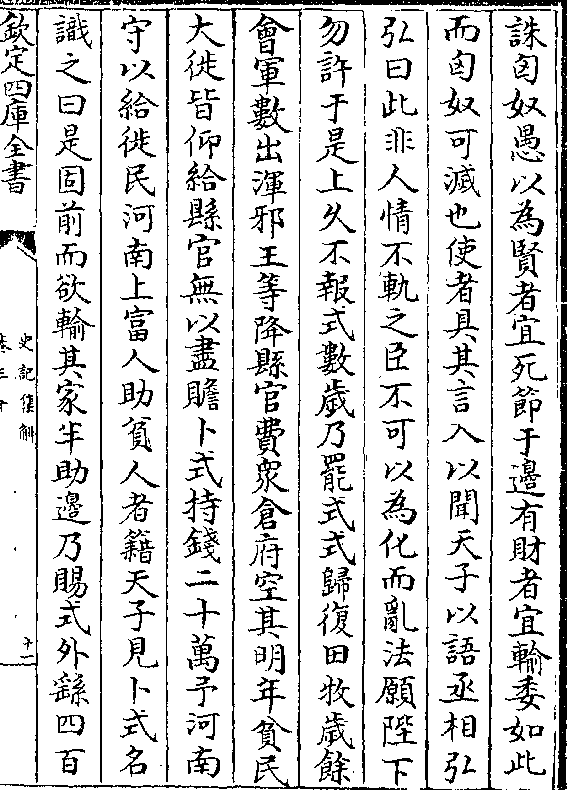 誅匈奴愚以為賢者宜死節于邊有財者宜輸委如此
而匈奴可滅也使者具其言入以聞天子以語丞相弘
弘曰此非人情不軌之臣不可以為化而亂法願陛下
勿許于是上久不報式數歲乃罷式式歸復田牧歲餘
會軍數出渾邪王等降縣官費衆倉府空其明年貧民
大徙皆仰給縣官無以盡贍卜式持錢二十萬予河南
守以給徙民河南上富人助貧人者籍天子見卜式名
識之曰是固前而欲輸其家半助邊乃賜式外繇四百
欽定四庫全書
史記
十一